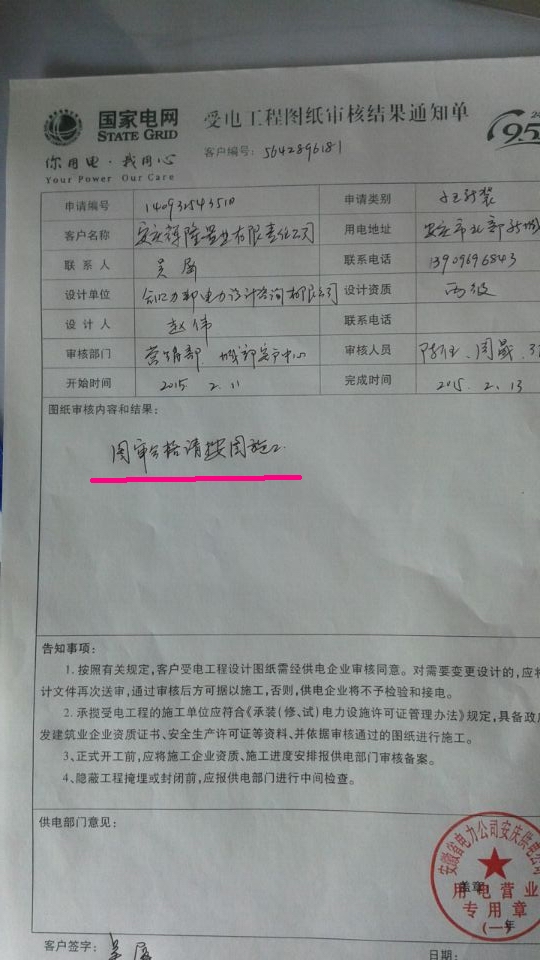 国家电网
STATE GRID
你用电·我用心
Your Power Our Care
受电工程图纸审核结果通知单
客户编号: 5642896181
95
申请编号 140932543510 申请类别
客户名称 用电地址
联系人 吴 联系电话 13909696843
设计单位 设计资质 丙级
设计人 赵伟 联系电话
审核部门 审核人员
开始时间 2015. 2. 11 完成时间 2015. 2. 13
图纸审核内容和结果:
图审合格请按图施工
告知事项:
1. 按照有关规定,客户受电工程设计图纸需经供电企业审核同意。对需要变更设计的,应将
计文件再次送审,通过审核后方可据以施工,否则,供电企业将不予检验和接电。
2. 承揽受电工程的施工单位应符合《承装(修、试)电力设施许可证管理办法》规定,具备政
发建筑业企业资质证书、安全生产许可证等资料、并依据审核通过的图纸进行施工。
3、正式开工前,应将施工企业资质、施工进度安排报供电部门审核备案。
4、隐蔽工程掩埋或封闭前,应报供电部门进行中间检查。
供电部门意见:
安徽省电力公司安庆供电公司
盖章
用电营业
专用章
(一)
年
客户签字: 吴
日期: